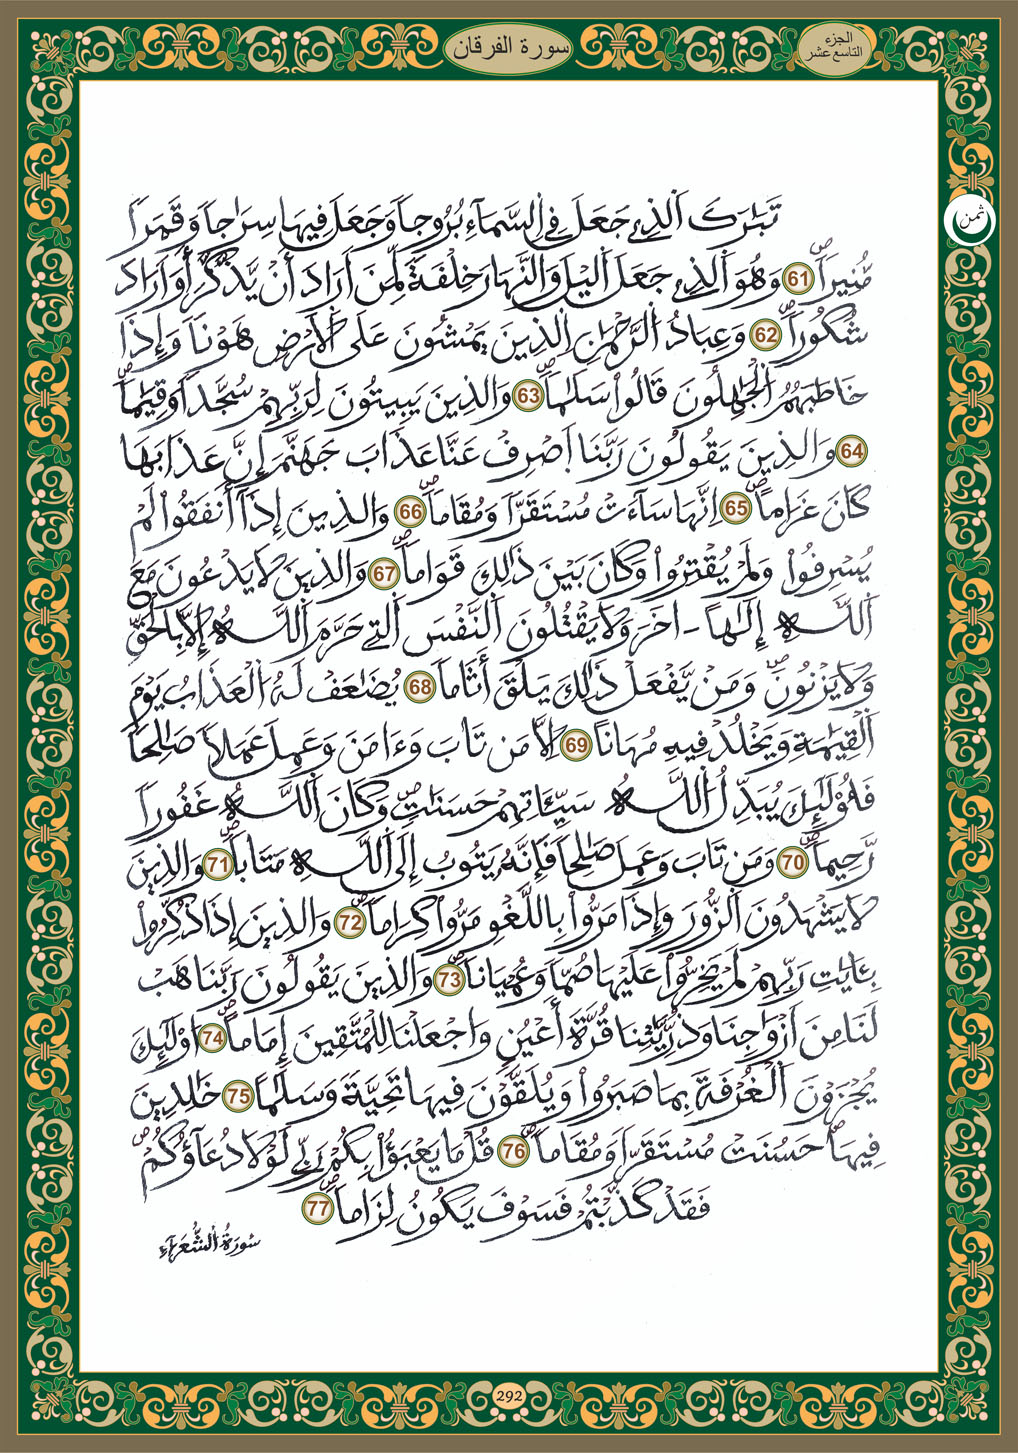 سورة الفرقان
الجزء
التاسع عشر
ثمن
تَبَٰرَكَ اَ۬لذِے جَعَلَ فِے اِ۬لسَّمَآءِ بُرُوجاٗ وَجَعَلَ فِيهَا سِرَٰجاٗ وَقَمَراٗ
مُّنِيراٗۖ 61 وَهُوَ اَ۬لذِے جَعَلَ اَ۬ليْلَ وَالنَّهَارَ خِلْفَةٗ لِّمَنَ اَرَادَ أَنْ يَّذَّكَّرَ أَوَ اَرَادَ
شُكُوراٗۖ 62 وَعِبَادُ اُ۬لرَّحْمَٰنِ اِ۬لذِينَ يَمْشُونَ عَلَى اَ۬لَارْضِ هَوْناٗ وَإِذَا
خَاطَبَهُمُ اُ۬لْجَٰهِلُونَ قَالُواْ سَلَٰماٗۖ 63 وَالذِينَ يَبِيتُونَ لِرَبِّهِمْ سُجَّداٗ وَقِيَٰماٗۖ
64 وَالذِينَ يَقُولُونَ رَبَّنَا اَ۪صْرِفْ عَنَّا عَذَابَ جَهَنَّمَ إِنَّ عَذَابَهَا
كَانَ غَرَاماًۖ 65 اِنَّهَا سَآءَتْ مُسْتَقَرّاٗ وَمُقَاماٗۖ 66 وَالذِينَ إِذَآ أَنفَقُواْ لَمْ
يُسْرِفُواْ وَلَمْ يُقْتِرُواْ وَكَانَ بَيْنَ ذَٰلِكَ قَوَاماٗۖ 67 وَالذِينَ لَا يَدْعُونَ مَعَ
اَ۬للَّهِ إِلَٰهاً ـ اخَرَ وَلَا يَقْتُلُونَ اَ۬لنَّفْسَ اَ۬لتِے حَرَّمَ اَ۬للَّهُ إِلَّا بِالْحَقِّ
وَلَا يَزْنُونَۖ وَمَنْ يَّفْعَلْ ذَٰلِكَ يَلْقَ أَثَاماٗ 68 يُضَٰعَفْ لَهُ اُ۬لْعَذَابُ يَوْمَ
اَ۬لْقِيَٰمَةِ وَيَخْلُدْ فِيهِۦ مُهَاناً 69 اِلَّا مَن تَابَ وَءَامَنَ وَعَمِلَ عَمَلاٗ صَٰلِحاٗ
فَأُوْلَٰٓئِكَ يُبَدِّلُ اُ۬للَّهُ سَيِّـَٔاتِهِمْ حَسَنَٰتٖۖ وَكَانَ اَ۬للَّهُ غَفُوراٗ
رَّحِيماٗۖ 70 وَمَن تَابَ وَعَمِلَ صَٰلِحاٗ فَإِنَّهُۥ يَتُوبُ إِلَى اَ۬للَّهِ مَتَاباٗۖ 71 وَالذِينَ
لَا يَشْهَدُونَ اَ۬لزُّورَ وَإِذَا مَرُّواْ بِاللَّغْوِ مَرُّواْ كِرَاماٗۖ 72 وَالذِينَ إِذَا ذُكِّرُواْ
بِـَٔايَٰتِ رَبِّهِمْ لَمْ يَخِرُّواْ عَلَيْهَا صُمّاٗ وَعُمْيَاناٗۖ 73 وَالذِينَ يَقُولُونَ رَبَّنَا هَبْ
لَنَا مِنَ اَزْوَٰجِنَا وَذُرِّيَّٰتِنَا قُرَّةَ أَعْيُنٖ وَاجْعَلْنَا لِلْمُتَّقِينَ إِمَاماًۖ 74 ا۟وْلَٰٓئِكَ
يُجْزَوْنَ اَ۬لْغُرْفَةَ بِمَا صَبَرُواْ وَيُلَقَّوْنَ فِيهَا تَحِيَّةٗ وَسَلَٰماً 75 خَٰلِدِينَ
فِيهَاۖ حَسُنَتْ مُسْتَقَرّاٗ وَمُقَاماٗۖ 76 قُلْ مَا يَعْبَؤُاْ بِكُمْ رَبِّے لَوْلَا دُعَآؤُكُمْۖ
فَقَدْ كَذَّبْتُمْ فَسَوْفَ يَكُونُ لِزَاماٗۖ 77
سُورَةُ اُ۬لشُّعَرَآءِ
292